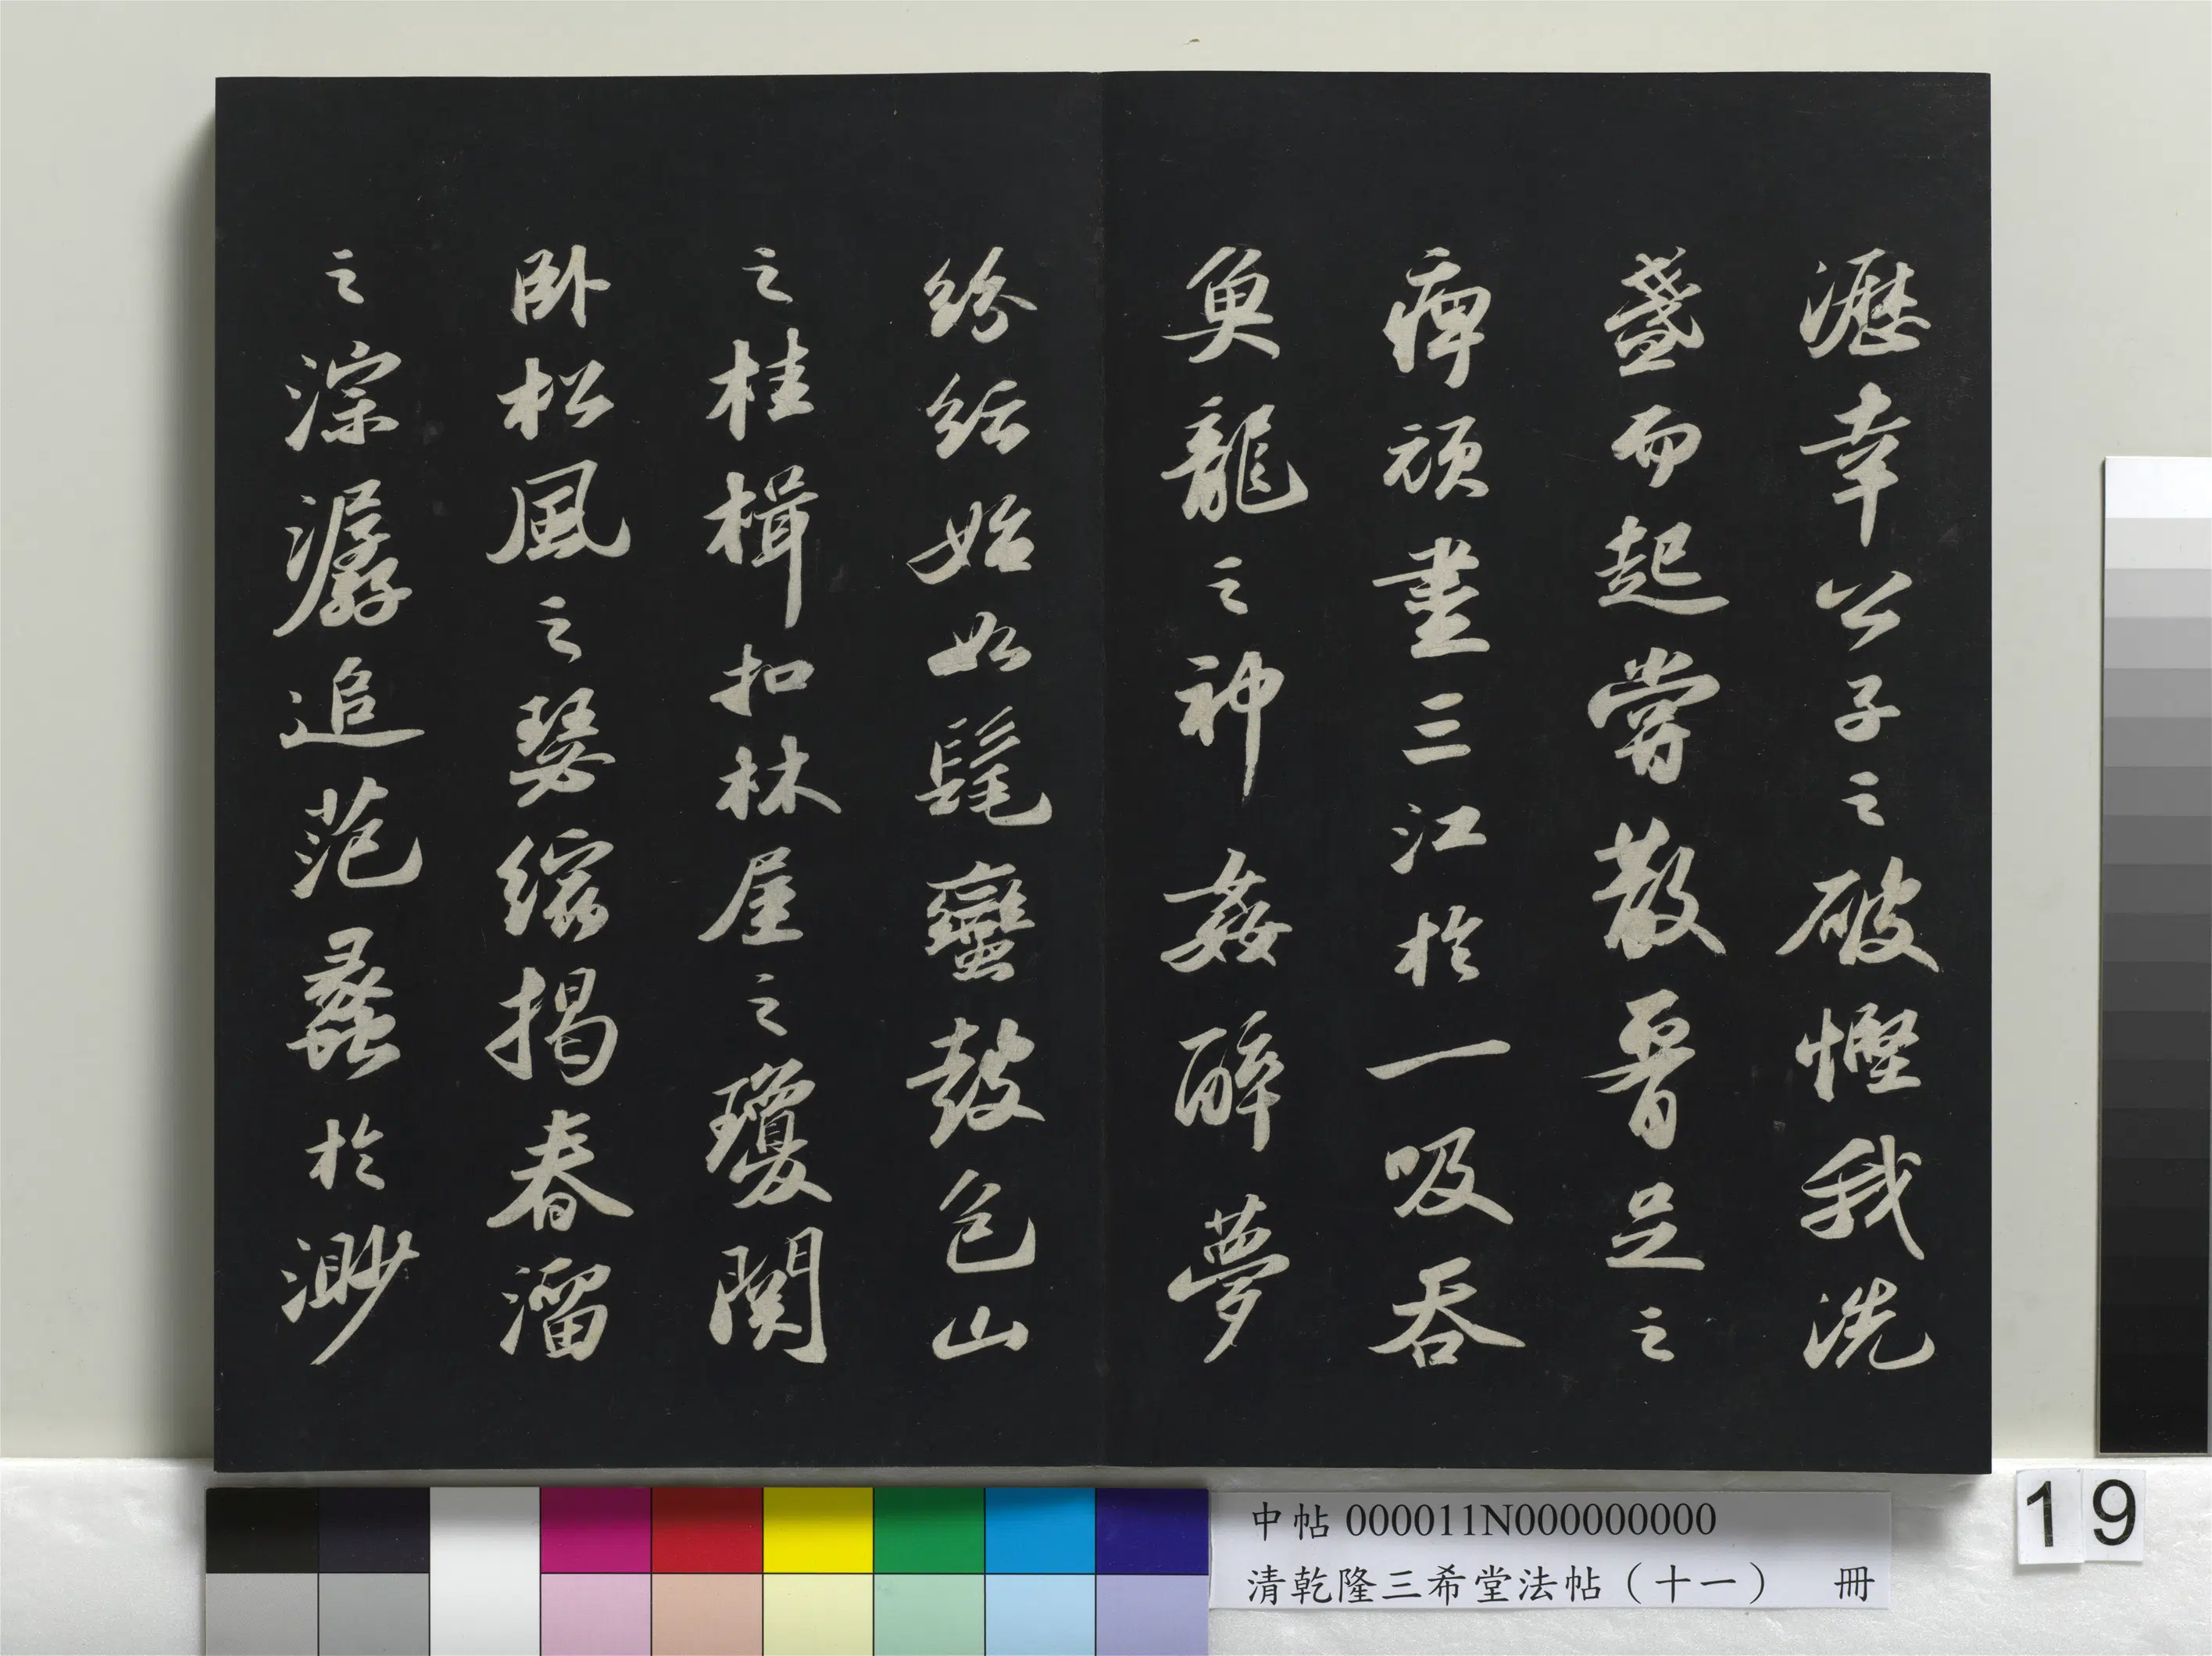 瀝幸公子之破慳我洗
盞而起嘗散腰足之
痺頑盡三江於一吸吞
魚龍之神姦醉夢
紛紜始如髦蠻鼓包山
之桂楫扣林屋之瓊關
臥松風之瑟縮揭春溜
之淙潺追范蠡於渺
中帖 000011N000000000
清乾隆三希堂法帖（十一） 冊
19